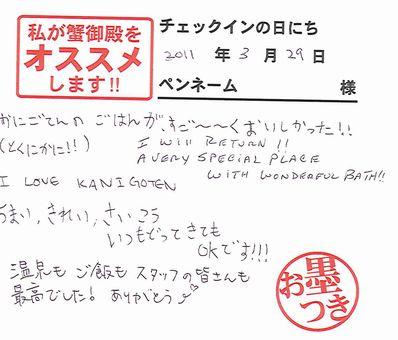 私が蟹御殿を
オススメ
します!!
チェックインの日にち
2011 年 3 月 29 日
ペンネーム 様
かにごてんの ごはんが、すご〜〜くおいしかった!!
(とくにかに!!)
I WILL RETURN!!
A VERY SPECIAL PLACE
WITH WONDERFUL BATH!!
I LOVE KANIGOTEN
うまい, きれい, さいこう
いつもどってきても
OKです!!!
温泉も ご飯も スタッフの皆さんも
最高でした! ありがとう
お墨
つき